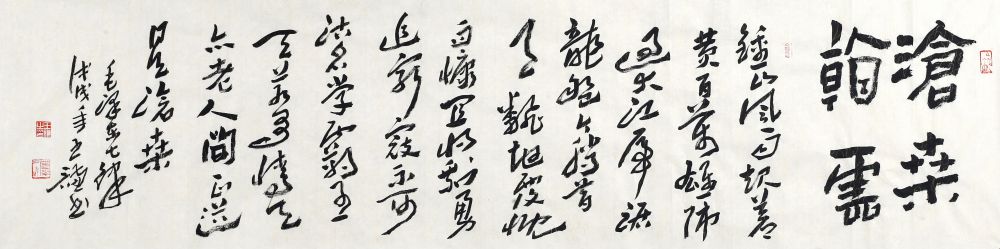 滄桑
翰
鍾山風雨起蒼
黄百萬雄師
過大江虎踞
龍盤今勝昔
天翻地覆慨
而慷宜將剩勇
追窮寇不可
沽名學霸王
天若有情天
亦老人間正道
是滄桑
毛澤東七律
戊戌年書